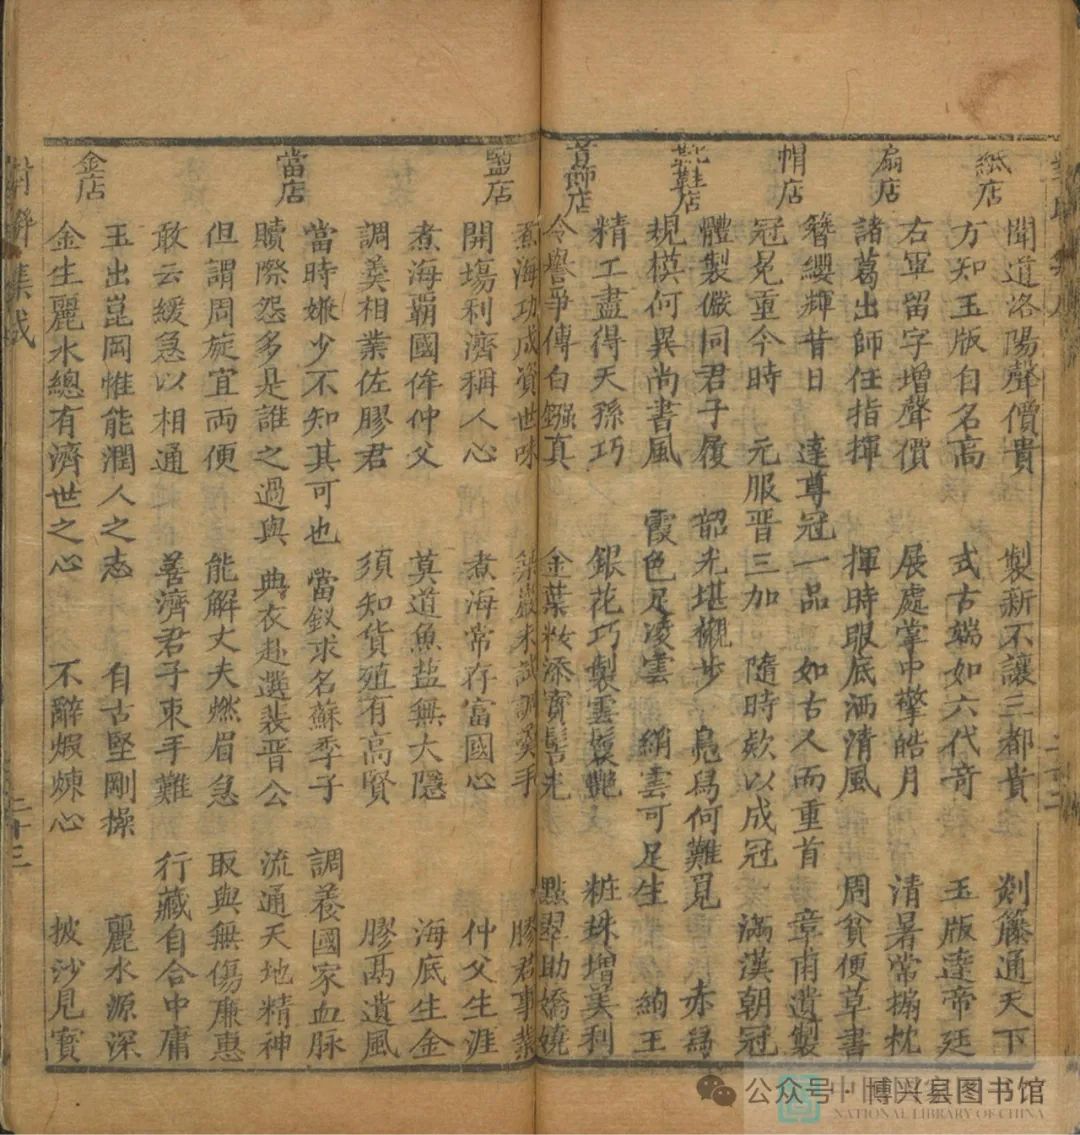 紙店
聞道洛陽聲價貴 製新不讓三都貴 剡籐通天下
方知玉版自名高 式古端如六代奇 玉版達帝廷
扇店
右軍留字增聲價 展處掌中擎皓月 清暑常搧枕
諸葛出師任指揮 揮時眼底洒清風 周貧便草書
帽店
簪纓輝昔日 達尊冠一品 如古人而重首 章甫遺製
冠冕重今時 元服晋三加 隨時欵以成冠 滿漢朝冠
靴鞋店
體製儼同君子履 韶光堪襯步 鳧舄何難覓 赤舄
規模何異尚書風 霞色足凌雲 絹雲可足生 絢王
首飾店
精工盡得天孫巧 銀花巧製雲鬟艷 粧珠增美利
令譽爭傳白鏹真 金葉粧添寳髻光 點翠助嬌嬈
鹽店
煮海功成資世味 築巖來試調羮手 膠君事業
開塲利濟稱人心 煮海常存富國心 仲父生涯
煮海覇國侔仲父 莫道魚盐無大隱 海底生金
調羹相業佐膠君 須知貨殖有高賢 膠鬲遺風
當店
當時嫌少不知其可也 當釵求名蘇季子 調養國家血脉
贖際怨多是誰之過與 典衣赴選裴晋公 流通天地精神
但謂周旋宜兩便 能解丈夫燃眉急 取與無傷廉惠
敢云緩急以相通 善濟君子束手難 行藏自合中庸
金店
玉出崑岡惟能潤人之志 自古堅剛操 麗水源深
金生麗水總有濟世之心 不辭煅煉心 披沙見寳
對聯集成
二十三
公众号·博兴县图书馆
NATIONAL LIBRARY OF CHINA